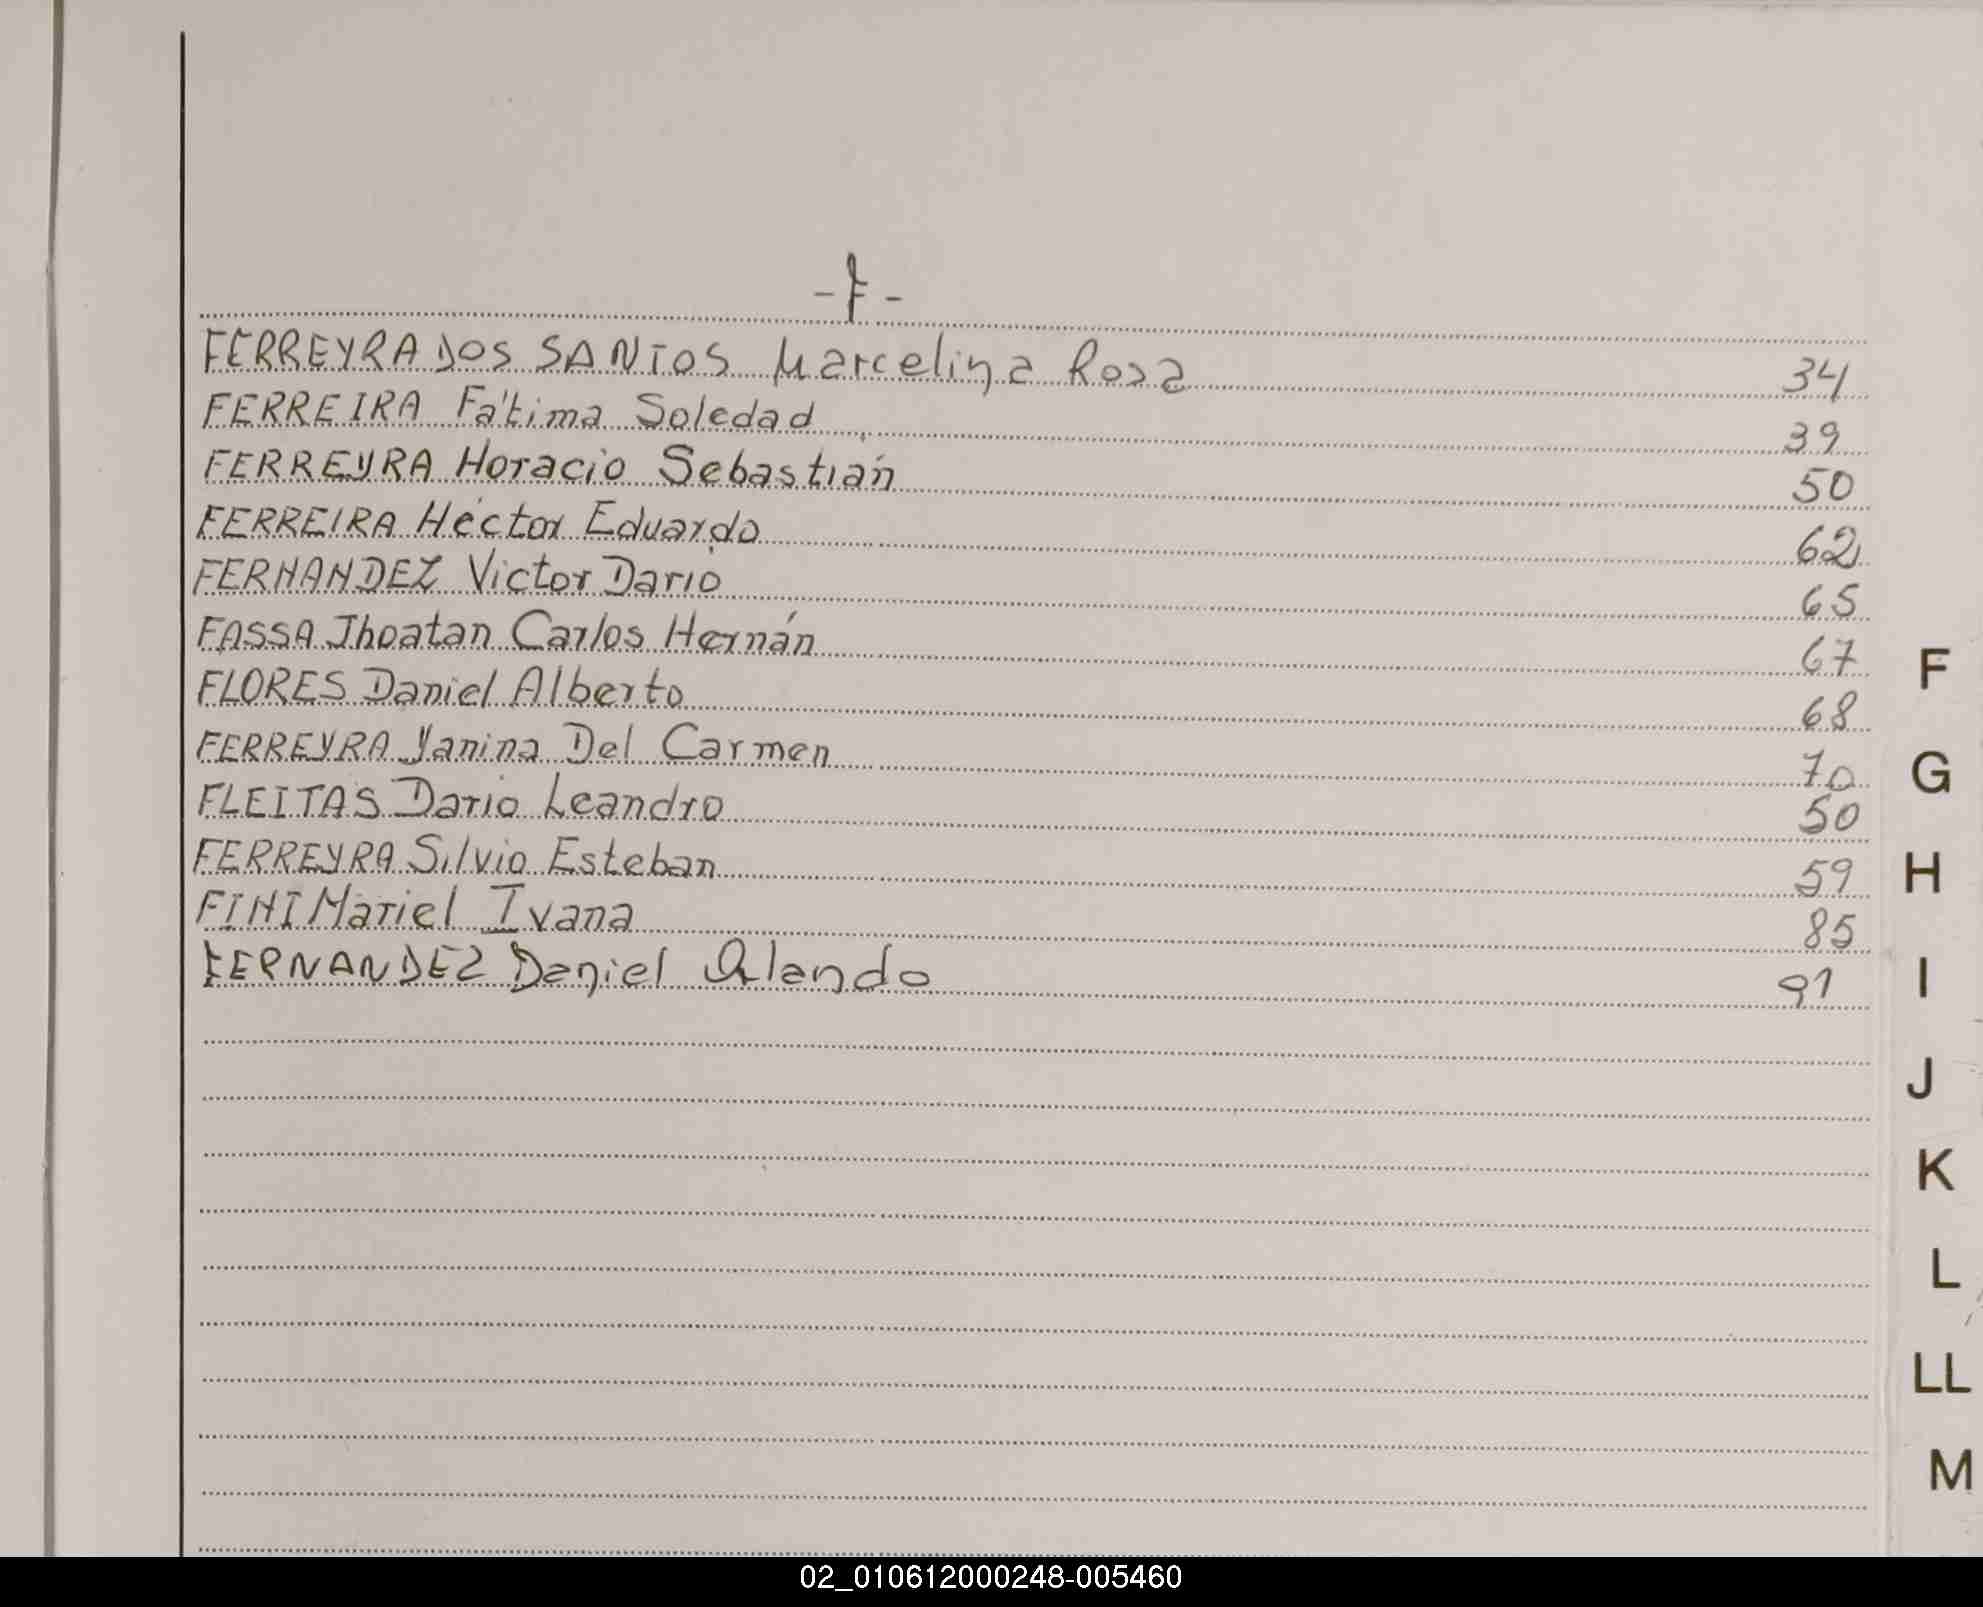 -F-
FERREYRA DOS SANTOS Marcelina Rosa 34
FERREIRA Fátima Soledad 39
FERREYRA Horacio Sebastián 50
FERREIRA Héctor Eduardo 62
FERNANDEZ Victor Dario 65
FASSA Jhoatan Carlos Hernán 67
FLORES Daniel Alberto 68
FERREYRA Yanina Del Carmen 70
FLEITAS Dario Leandro 50
FERREYRA Silvio Esteban 59
FINI Mariel Ivana 85
FERNANDEZ Daniel Orlando 91
F
G
H
I
J
K
L
LL
M
02_010612000248-005460